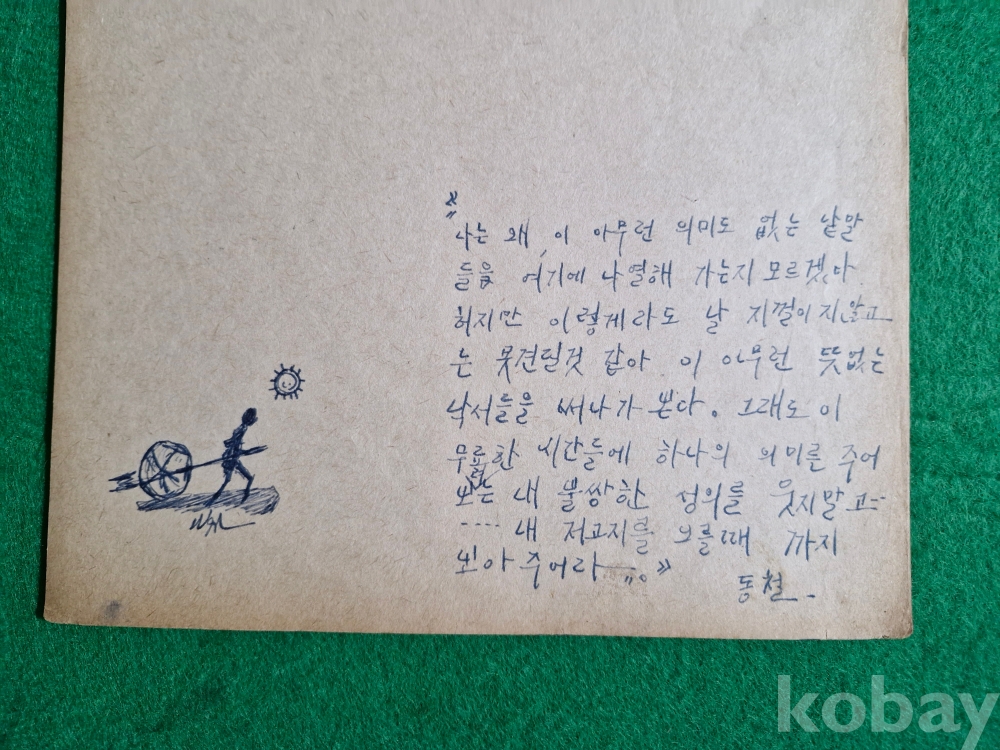 "나는 왜, 이 아무런 의미도 없는 낱말
들을 여기에 나열해 가는지 모르겠다.
허지만 이렇게라도 날 지껄이지 않고
는 못견딜것 같아 이 아무런 뜻없는
낙서들을 써나가 본다. 그래도 이
무료한 시간들에 하나의 의미를 주어
보는 내 불쌍한 성의를 웃지말고
.... 내 저고지를 부를때 까지
보아 주어라—„. 》
동철.
kobay